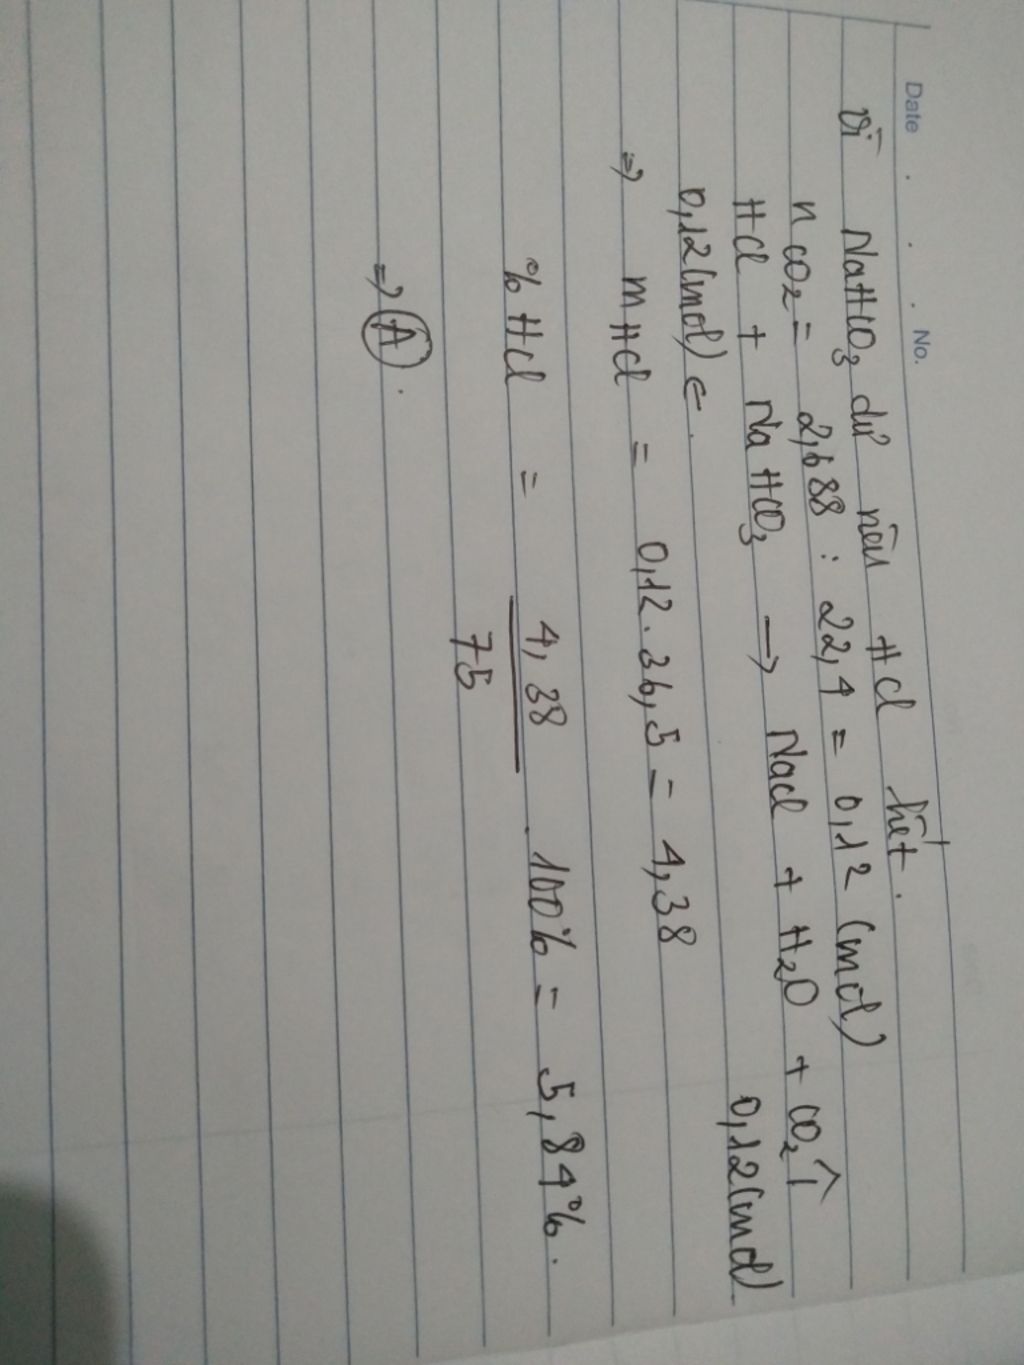 Date . . . No.
Vì NaHCO3 dư nên HCl hết.
nCO2 = 2,688 : 22,4 = 0,12 (mol)
HCl + NaHCO3 → NaCl + H2O + CO2↑
0,12(mol) ← 0,12(mol)
⇒ mHCl = 0,12.36,5 = 4,38
%HCl = 4,38/75 .100% = 5,84%.
⇒ A.